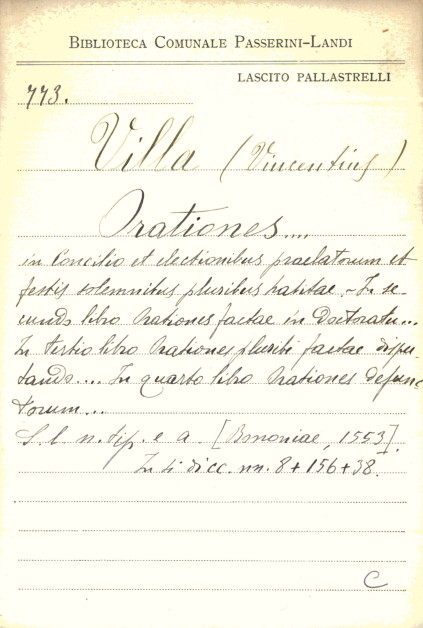 BIBLIOTECA COMUNALE PASSERINI-LANDI
LASCITO PALLASTRELLI
773.
Villa (Vincentius)
Orationes....
in Concilio et electionibus praelatorum et
festis solemnibus pluribus habitae. - In se-
cundo libro Orationes factae in Doctoratu...
In tertio libro Orationes pluribi factae dispu-
tando.... In quarto libro Orationes defunc
torum...
S. l. n. tip. e a. [Bononiae, 1553].
In 4 di cc. nn. 8+156+38.
C